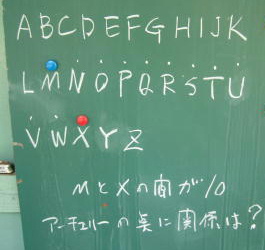 ABCDEFGHIJK
LMNOPQRSTU
VWXYZ
MとXの間が10
アーチェリーの真に関係は?